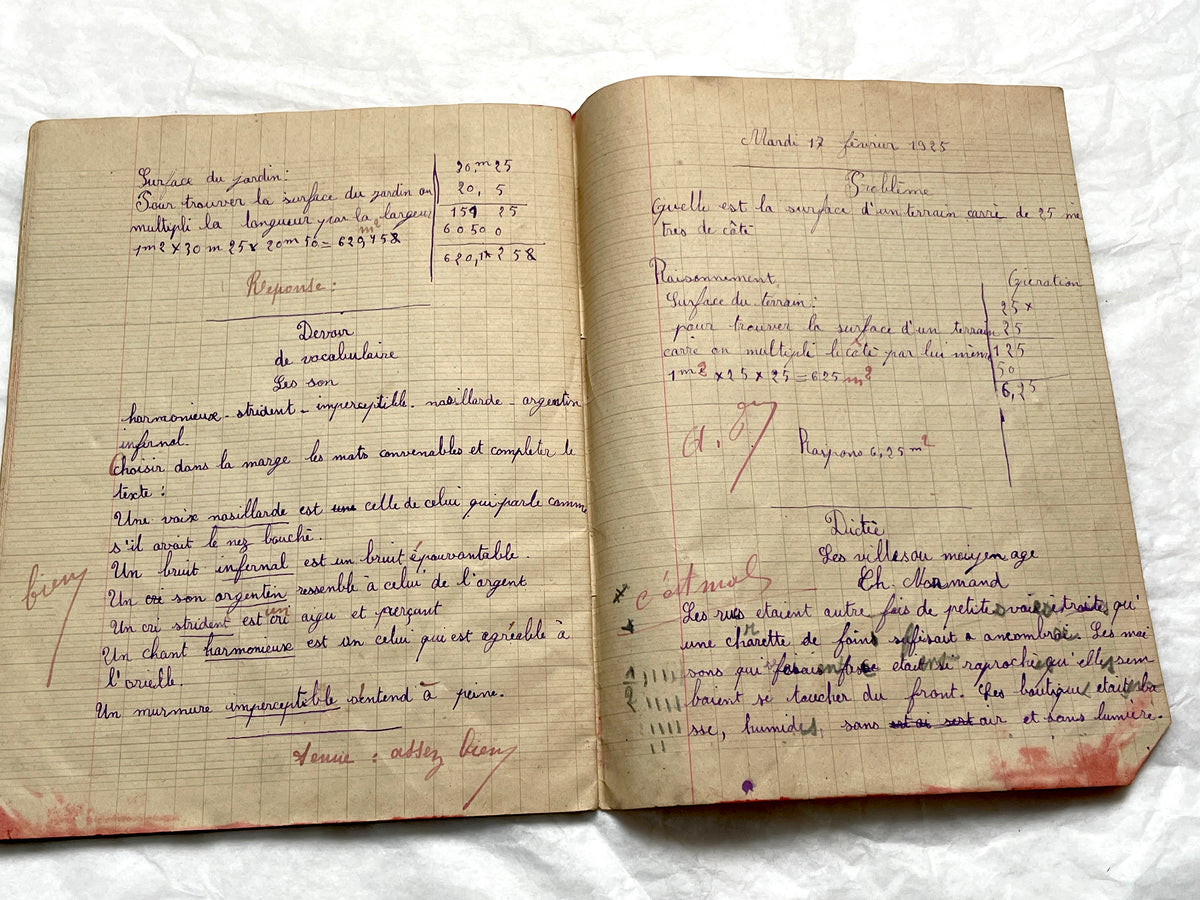 Surface du jardin:
Pour trouver la surface du jardin on
multipli la longueur par la largeur
1m2 × 30 m 25 × 20m 50 = 629,4582
m
30,m25
20, 5
151 25
6050 0
620,1× 258
Reponse:
Devoir
de vocabulaire
Les son
harmonieux - strident - imperceptible - nasillarde - argentin
infernal.
Choisir dans la marge les mots convenables et completer le
texte:
Une voix nasillarde est une celle de celui qui parle comm
s'il avait le nez bouché.
Un bruit infernal est un bruit épouvantable.
Un cri son argentin ressemble à celui de l'argent
Un cri strident est un cri aigu et perçant
Un chant harmonieux est un celui qui est agréable à
l'orielle.
Un murmure imperceptible s'entend à peine.
bien
tenue: assez bien
Mardi 17 février 1925
Problème
Quelle est la surface d'un terrain carré de 25 mè
tres de côté
Raisonnement
Surface du terrain:
pour trouver la surface d'un terrain
carré on multipli le côté par lui même
1m2 × 25 × 25 = 625 m2
Opération
25 ×
25
125
50
6,25
Raspons 6,25 m2
Dictée
Les villes au moiyen age
Ch. Normand
c'est mal
Les rues etaient autre fois de petites voies étroites qu'
une charette de foins suffisait a ancombrai. Les mai
sons qui face etait si raproché qu'elles sem
baient se toucher du front. Les boutiques etait ba
sse, humides, sans est ai sert air et sans lumière.